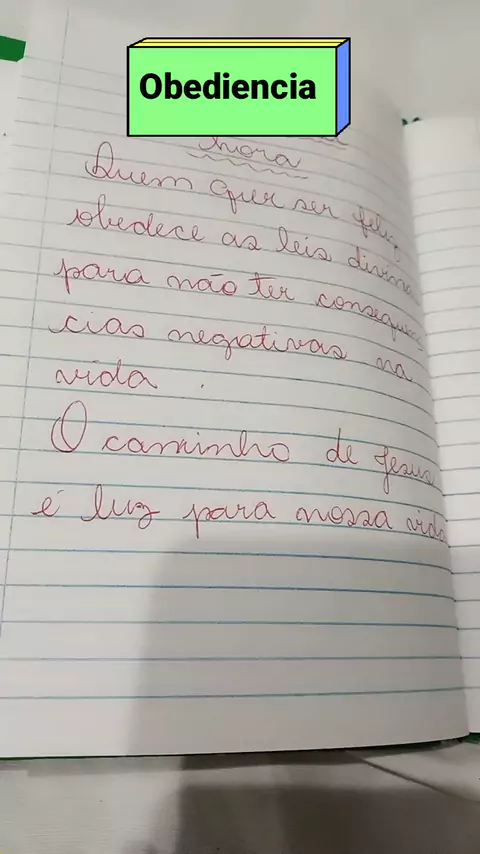 Obediencia
hora
Quem quer ser feliz
obedece as leis divina
para não ter consequên
cias negativas na
vida.
O caminho de Jesus
é luz para nossa vida